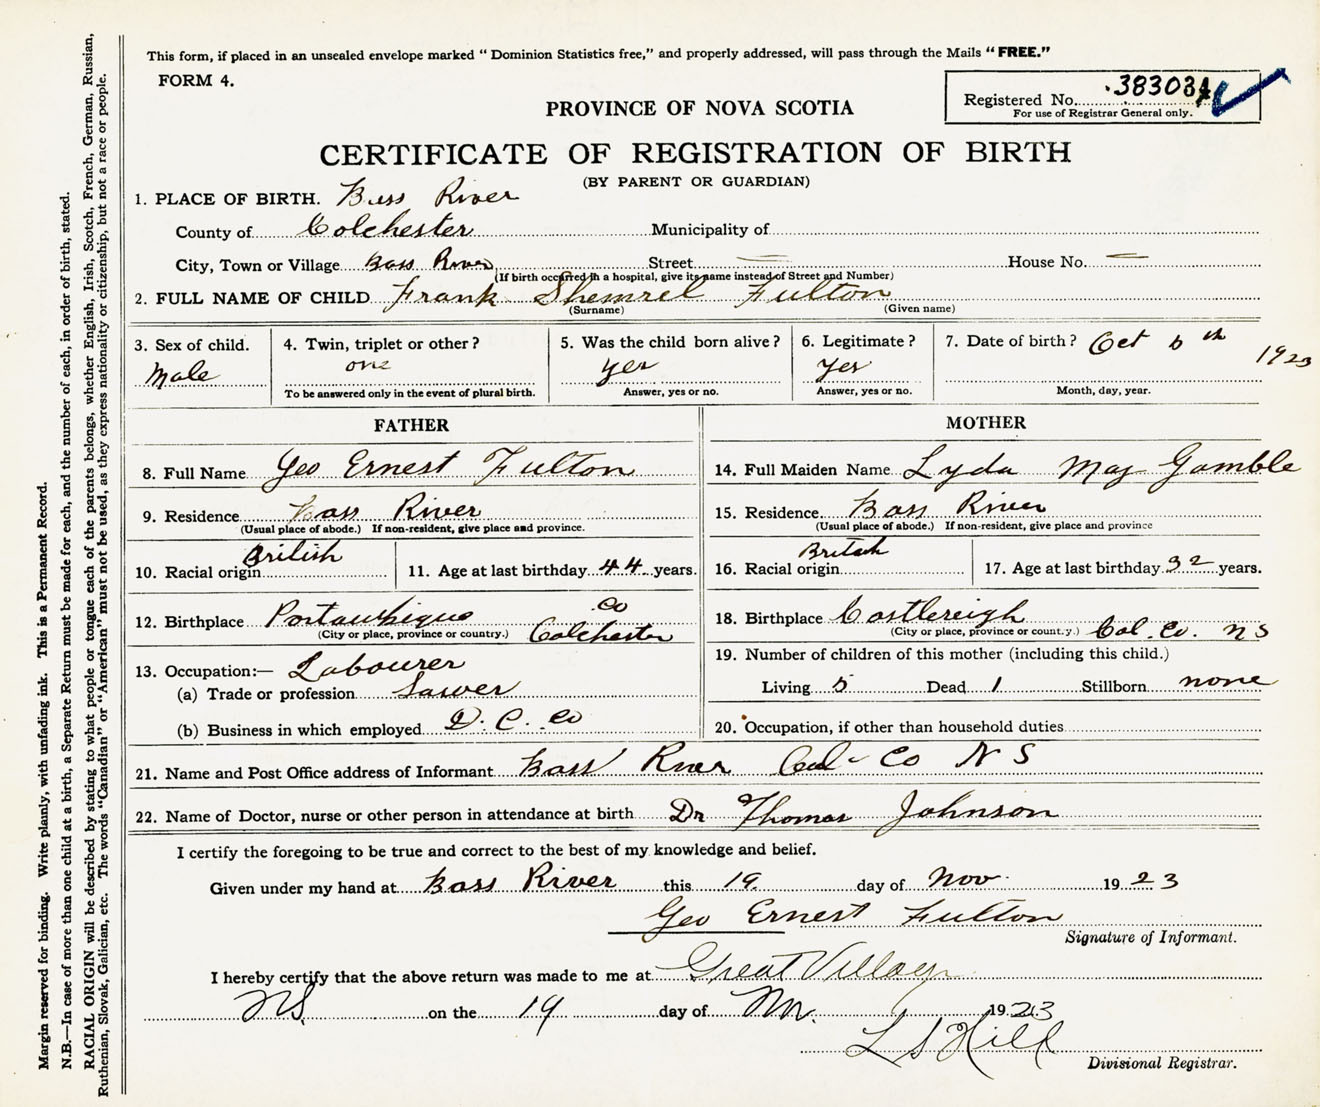 This form, if placed in an unsealed envelope marked “ Dominion Statistics free,” and properly addressed, will pass through the Mails “ FREE.”
FORM 4.
Registered No. 38303
For use of Registrar General only.
PROVINCE OF NOVA SCOTIA
CERTIFICATE OF REGISTRATION OF BIRTH
(BY PARENT OR GUARDIAN)
1. PLACE OF BIRTH. Bass River
County of Colchester Municipality of
City, Town or Village Bass River Street — House No. —
(If birth occurred in a hospital, give its name instead of Street and Number)
2. FULL NAME OF CHILD Frank Fulton
(Surname) (Given name)
3. Sex of child. 4. Twin, triplet or other? 5. Was the child born alive? 6. Legitimate? 7. Date of birth? Oct 6 th 1923
Male one yes yes
To be answered only in the event of plural birth. Answer, yes or no. Answer, yes or no. Month, day, year.
FATHER MOTHER
8. Full Name Geo Ernest Fulton 14. Full Maiden Name Lyda May Gamble
9. Residence Bass River 15. Residence Bass River
(Usual place of abode.) If non-resident, give place and province. (Usual place of abode.) If non-resident, give place and province
10. Racial origin British 11. Age at last birthday 44 years. 16. Racial origin British 17. Age at last birthday 32 years.
12. Birthplace Portaupique Co Colchester 18. Birthplace Castlereigh Col. Co. N S
(City or place, province or country.) (City or place, province or country.)
13. Occupation:— Labourer 19. Number of children of this mother (including this child.)
(a) Trade or profession Sawer Living 5 Dead 1 Stillborn none
(b) Business in which employed D. C. Co 20. Occupation, if other than household duties
21. Name and Post Office address of Informant Bass River Col- Co N S
22. Name of Doctor, nurse or other person in attendance at birth Dr Thomas Johnson
I certify the foregoing to be true and correct to the best of my knowledge and belief.
Given under my hand at Bass River this 19 day of Nov. 1923
Geo Ernest Fulton
Signature of Informant.
I hereby certify that the above return was made to me at Great Village
NS. on the 19 day of Nov. 1923
L S Hill
Divisional Registrar.
Margin reserved for binding. Write plainly, with unfading ink. This is a Permanent Record.
N.B.—In case of more than one child at a birth, a Separate Return must be made for each, and the number of each, in order of birth, stated.
RACIAL ORIGIN will be described by stating to what people or tongue each of the parents belongs, whether English, Irish, Scotch, French, German, Russian,
Ruthenian, Slovak, Galician, etc. The words “Canadian” or “American” must not be used, as they express nationality or citizenship, but not a race or people.